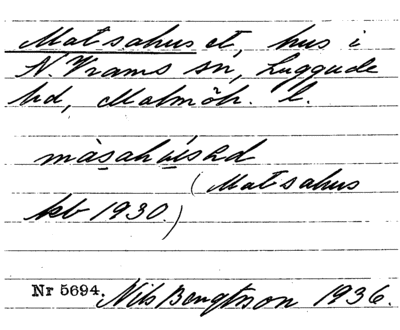 Matsahuset, hus i
N. Vrams sn, Luggude
hd, Malmöh. l.
màsahúsəd
(Matsahus
kb 1930)
Nr 5694. Nils Bengtsson 1936.